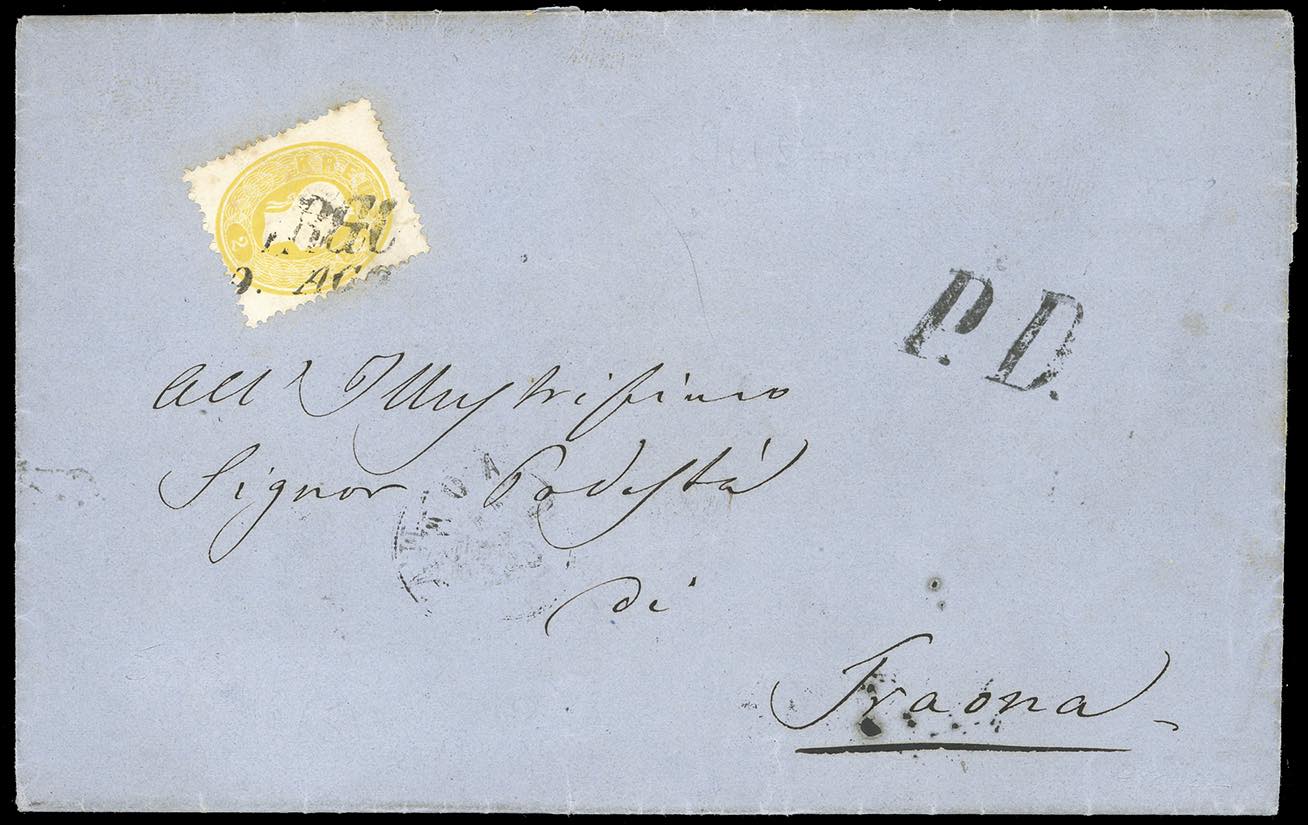 KRE
2
9. AGO
P.D.
All' Illustrissimo
Signor Podestà
di
Traona